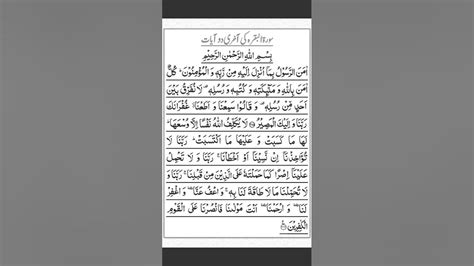 سورۃ البقرہ کی آخری دو آیات
بِسْمِ اللّٰهِ الرَّحْمٰنِ الرَّحِيْمِ
اٰمَنَ الرَّسُوْلُ بِمَاۤ اُنْزِلَ اِلَيْهِ مِنْ رَّبِّهٖ وَ الْمُؤْمِنُوْنَ ؕ كُلٌّ
اٰمَنَ بِاللّٰهِ وَ مَلٰٓئِكَتِهٖ وَ كُتُبِهٖ وَ رُسُلِهٖ ۫ لَا نُفَرِّقُ بَيْنَ
اَحَدٍ مِّنْ رُّسُلِهٖ ۫ وَ قَالُوْا سَمِعْنَا وَ اَطَعْنَا ٗۗ غُفْرَانَكَ
رَبَّنَا وَ اِلَيْكَ الْمَصِيْرُ ۝ لَا يُكَلِّفُ اللّٰهُ نَفْسًا اِلَّا وُسْعَهَا ؕ
لَهَا مَا كَسَبَتْ وَ عَلَيْهَا مَا اكْتَسَبَتْ ؕ رَبَّنَا لَا
تُؤَاخِذْنَاۤ اِنْ نَّسِيْنَاۤ اَوْ اَخْطَاْنَا ۚ رَبَّنَا وَ لَا تَحْمِلْ
عَلَيْنَاۤ اِصْرًا كَمَا حَمَلْتَهٗ عَلَى الَّذِيْنَ مِنْ قَبْلِنَا ۚ رَبَّنَا وَ
لَا تُحَمِّلْنَا مَا لَا طَاقَةَ لَنَا بِهٖ ۚ وَ اعْفُ عَنَّا ٙ وَ اغْفِرْ
لَنَا ٙ وَ ارْحَمْنَا ٙ اَنْتَ مَوْلٰىنَا فَانْصُرْنَا عَلَى الْقَوْمِ
الْكٰفِرِيْنَ ۝